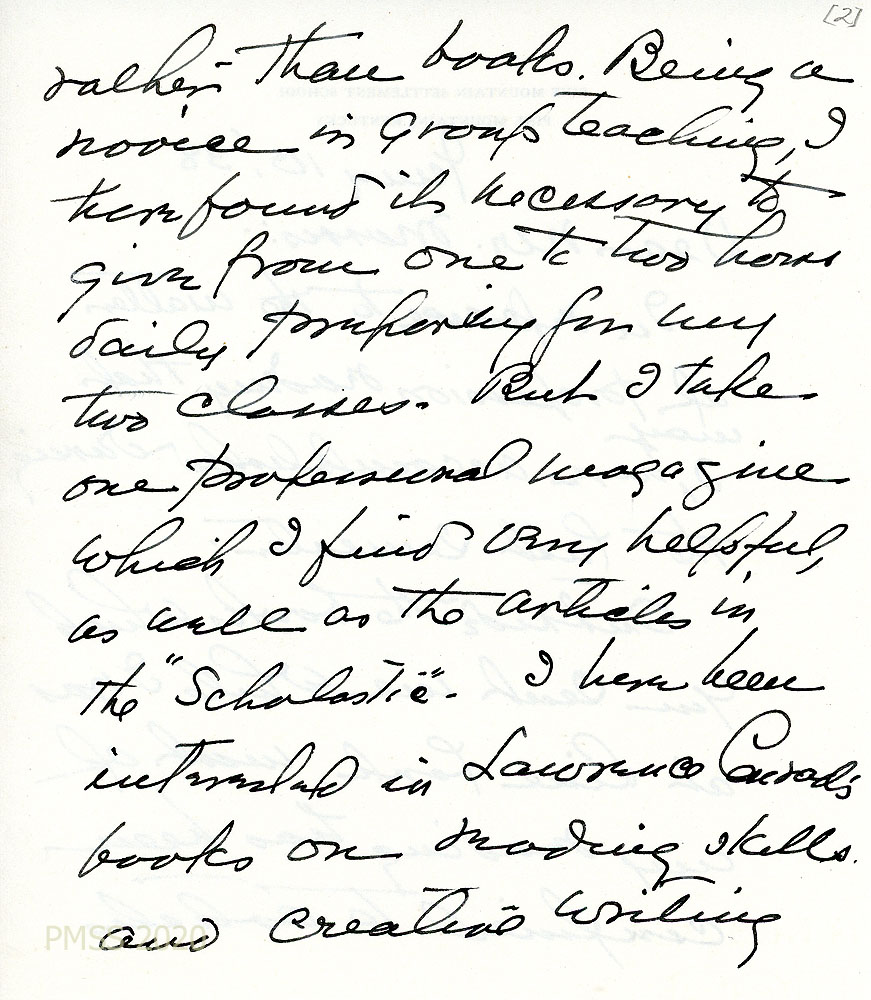 [2]
rather than books. Being a
novice in group teaching, I
have found it necessary to
give from one to two hours
daily preparing for my
two classes. But I take
one professional magazine
which I find very helpful,
as well as the articles in
the "Scholastic". I have been
interested in Lawrence Conrad's
books on reading skills
and creative writing
PMSS 2020